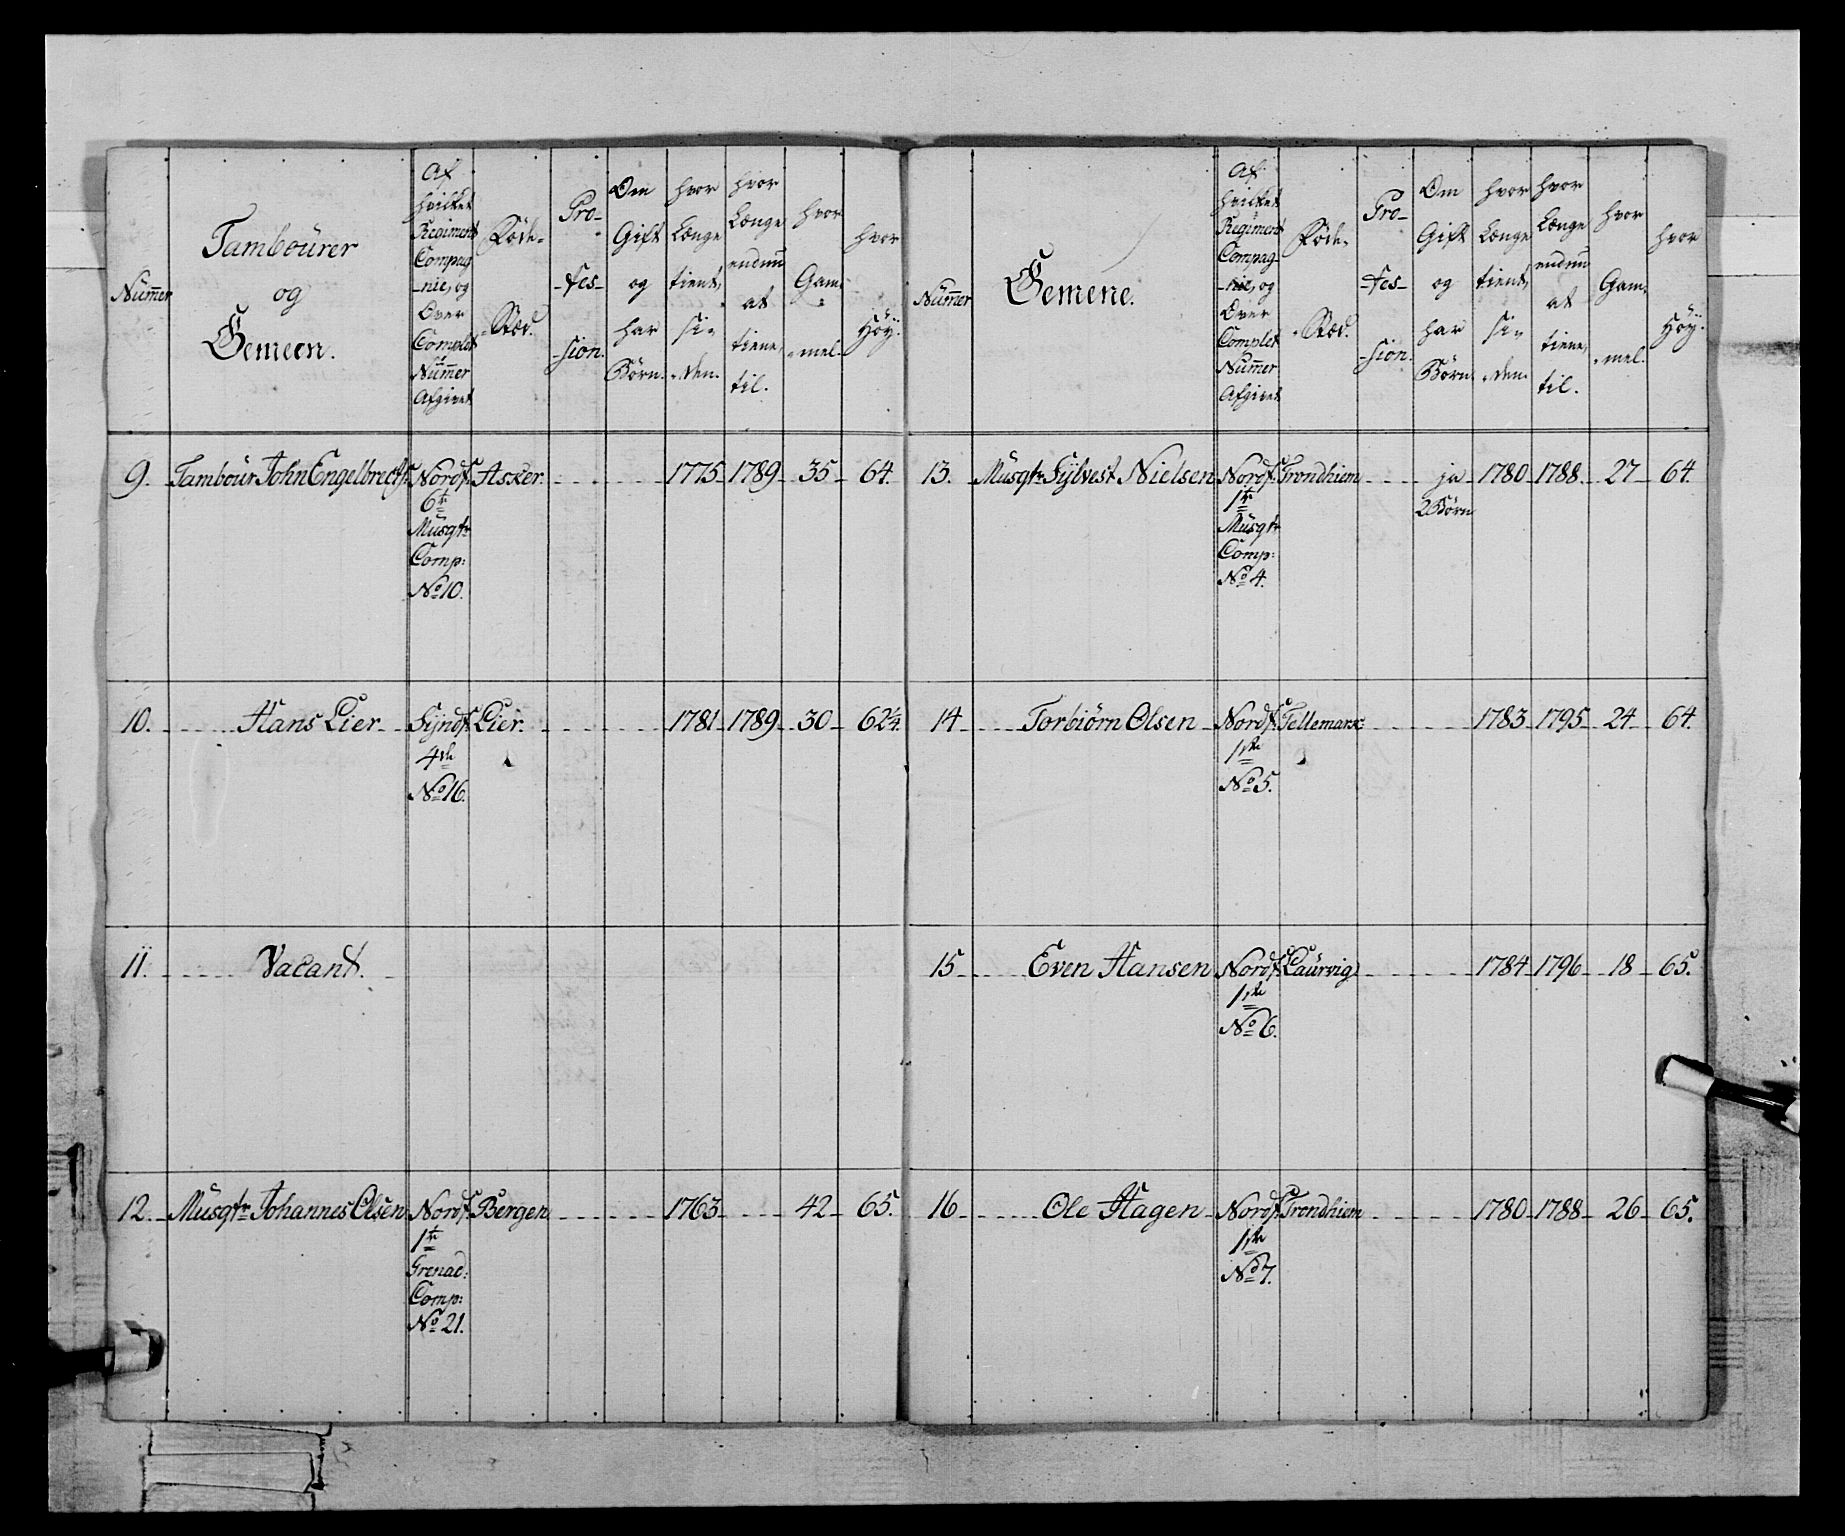 Numer
Tambourer
og
Gemeen.
Af
hvilket
Regiment
Compag
-nie, og
Over
Complet
Numer
Afgivet
Føde-
-Stæd.
Pro-
-fes-
-sion.
Om
Gift
og
har
Børn.
hvor
Længe
tient,
si-
-den.
hvor
Længe
endnu
at
tiene,
til.
hvor
Gam-
-mel.
hvor
Høy.
9. Tambour John Engelbrechts. Nordf. Asker. 1775 1789 35 64.
6te
Musqtr
Comp:
No 10.
10. Hans Lier Syndf. Lier. 1781 1789 30 62¼.
4de
No 16.
11. Vacant.
12. Musqtr Johannes Olsen Nordf. Bergen 1763 42 65.
1te
Grenad:
Comp:
No 21.
Numer
Gemene.
Af
hvilket
Regiment
Compag-
-nie, og
Over
Complet
Numer
Afgivet
Føde-
-Stæd.
Pro-
-fes-
-sion.
Om
Gift
og
har
Børn.
hvor
Længe
tient,
si-
-den.
hvor
Længe
endnu
at
tiene,
til.
hvor
Gam-
-mel.
hvor
Høy.
13. Musqtr Sylvest Nielsen Nordf. Trondhiem ja 1780 1788. 27 64.
1te 2 Børn
Musqtr
Comp:
No 4.
14 Torbiørn Olsen Nordf. Tellemark 1783 1795 24 64.
1ste
No 5.
15 Even Hansen Nordf. Laurvig 1784 1796 18 65.
1ste
No 6.
16 Ole Hagen Nordf. Trondhiem 1780 1788 26 65.
1ste
No 7.